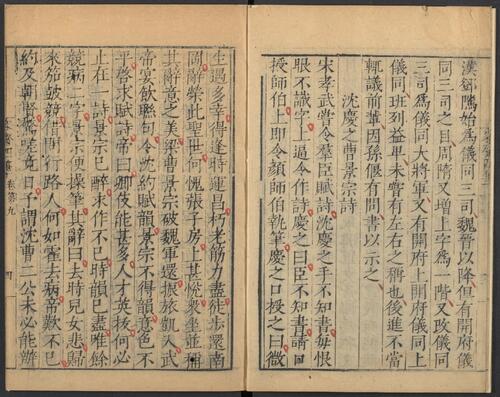 漢鄧騭始爲儀同三司魏晉以降但有開府儀
同三司之目周隋又增上字爲一階又改儀同
三司爲儀同大將軍又有開府儀同上
儀同班列益卑未嘗有左右之稱也後進不當
輒議前輩因孫偃有問書以示之
沈慶之曹景宗詩
宋孝武嘗令羣臣賦詩沈慶之手不知書每恨
眼不識字上逼令作詩慶之曰臣不知書請口
授師伯上即令顏師伯執筆慶之口授之曰微
生遇多幸得逢時運昌朽老筋力盡徒步還南
岡辭榮此聖世何愧張子房上甚悅衆坐並稱
其辭意之美梁曹景宗破魏軍還振旅凱入武
帝宴飲聯句令沈約賦韻景宗不得韻意色不
平啓求賦詩帝曰卿伎能甚多人才英拔何必
止在一詩景宗已醉求作不已時韻已盡唯餘
競病二字景宗便操筆其辭曰去時兒女悲歸
來笳鼓競借問行路人何如霍去病帝歎不已
約及朝賢驚嗟竟日予謂沈曹二公未必能辦
卷第九
四